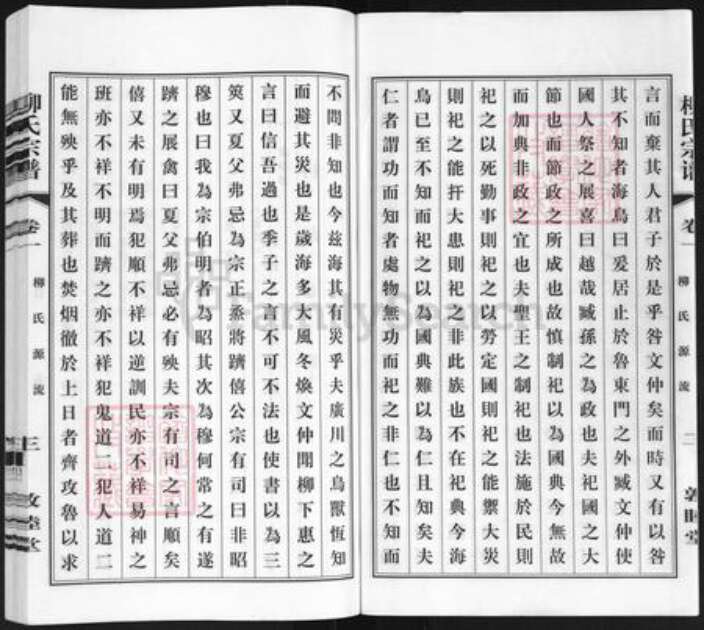 言而棄其人君子於是乎咎文仲矣而時又有以咎
其不知者海鳥曰爰居止於魯東門之外臧文仲使
國人祭之展喜曰越哉臧孫之為政也夫祀國之大
節也而節政之所成也故慎制祀以為國典今無故
而加典非政之宜也夫聖王之制祀也法施於民則
祀之以死勤事則祀之以勞定國則祀之能禦大災
則祀之能扞大患則祀之非此族也不在祀典今海
鳥已至不知而祀之以為國典難以為仁且知矣夫
仁者謂功而知者處物無功而祀之非仁也不知而
柳氏宗譜
卷一
柳氏源流
二
敦睦堂
不問非知也今茲海其有災乎夫廣川之鳥獸恆知
而避其災也是歲海多大風冬煥文仲聞柳下惠之
言曰信吾過也季子之言不可不法也使書以為三
筴又夏父弗忌為宗正烝將躋僖公宗有司曰非昭
穆也曰我為宗伯明者為昭其次為穆何常之有遂
躋之展禽曰夏父弗忌必有殃夫宗有司之言順矣
僖又未有明焉犯順不祥以逆訓民亦不祥易神之
班亦不祥不明而躋之亦不祥犯鬼道二犯人道二
能無殃乎及其葬也焚烟徹於上日者齊攻魯以求
柳氏宗譜
卷一
柳氏源流
三
敦睦堂
FamilySearch